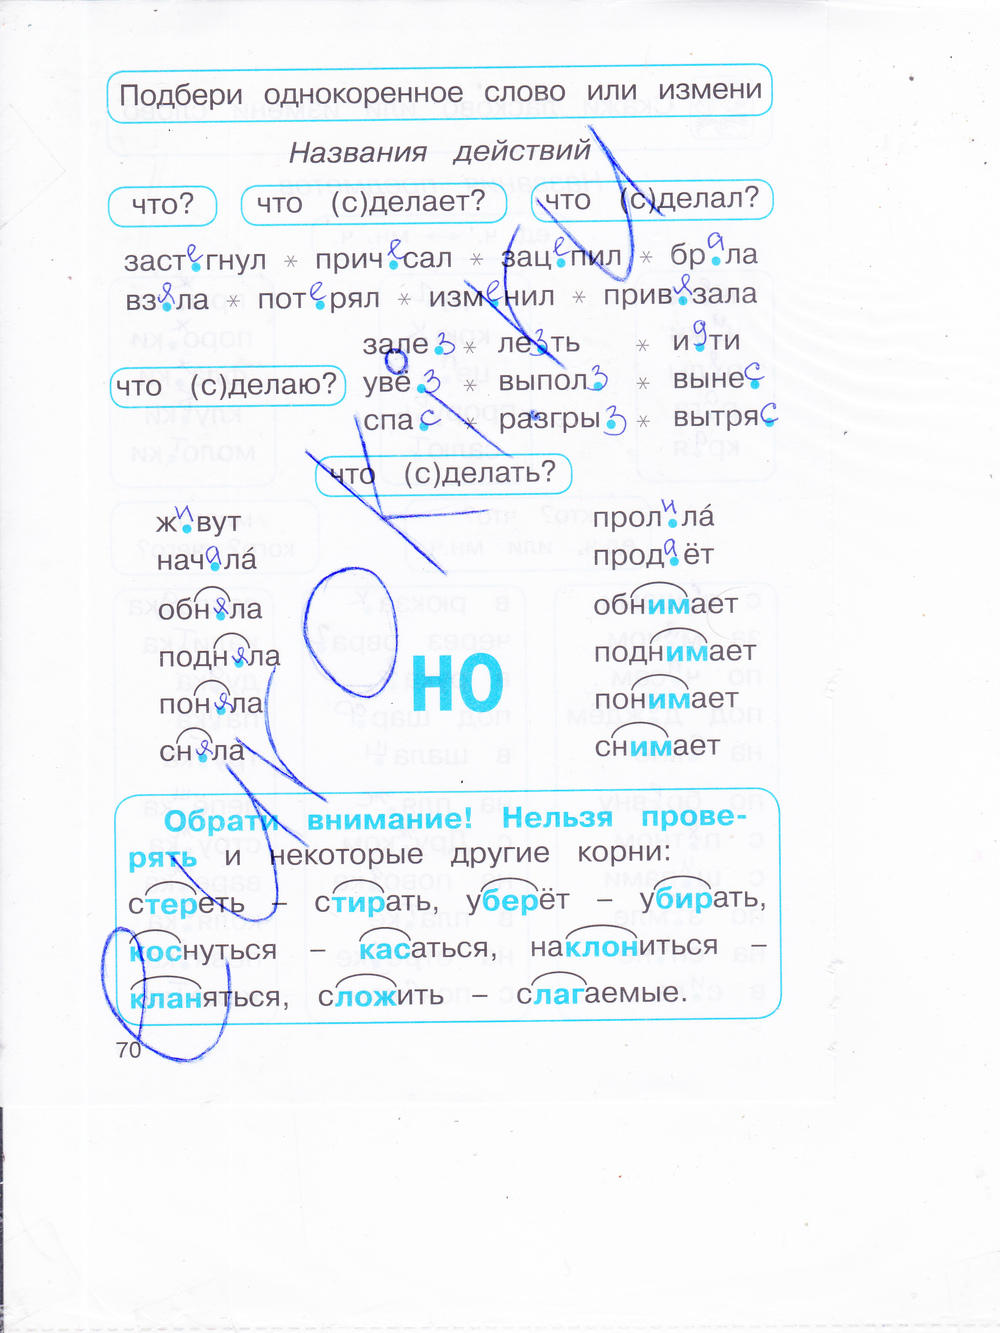 Подбери однокоренное слово или измени
Названия действий
что? что (с)делает? что (с)делал?
застегнул * причесал * зацепил * брала
взяла * потерял * изменил * привязала
залез * лезть * идти
что (с)делаю? увёз * выполз * вынес
спас * разгрыз * вытряс
что (с)делать?
живут пролила́
начала́ продаёт
обняла обнимает
подняла поднимает
НО
поняла понимает
сняла снимает
Обрати внимание! Нельзя прове-
рять и некоторые другие корни:
стереть – стирать, уберёт – убирать,
коснуться – касаться, наклониться –
кланяться, сложить – слагаемые.
70